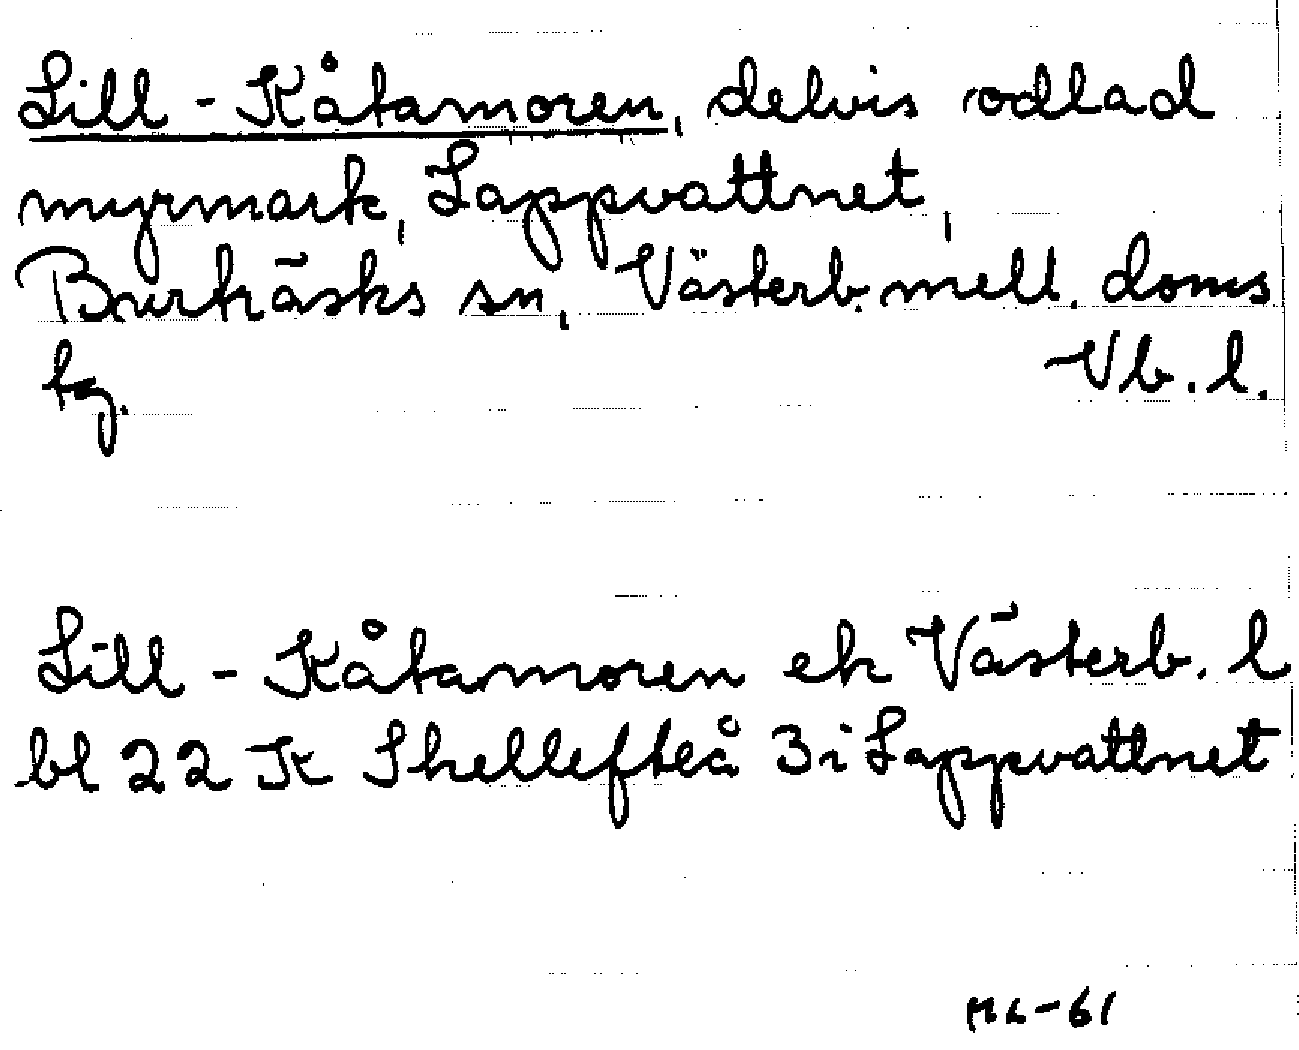 Lill-Kåtamoren, delvis odlad
myrmark, Lappvattnet,
Burträsks sn, Västerb. mell. doms
tg. Vb. l.
Lill-Kåtamoren ek Västerb. l
bl 22 K Skellefteå 3 i Lappvattnet
ML-61